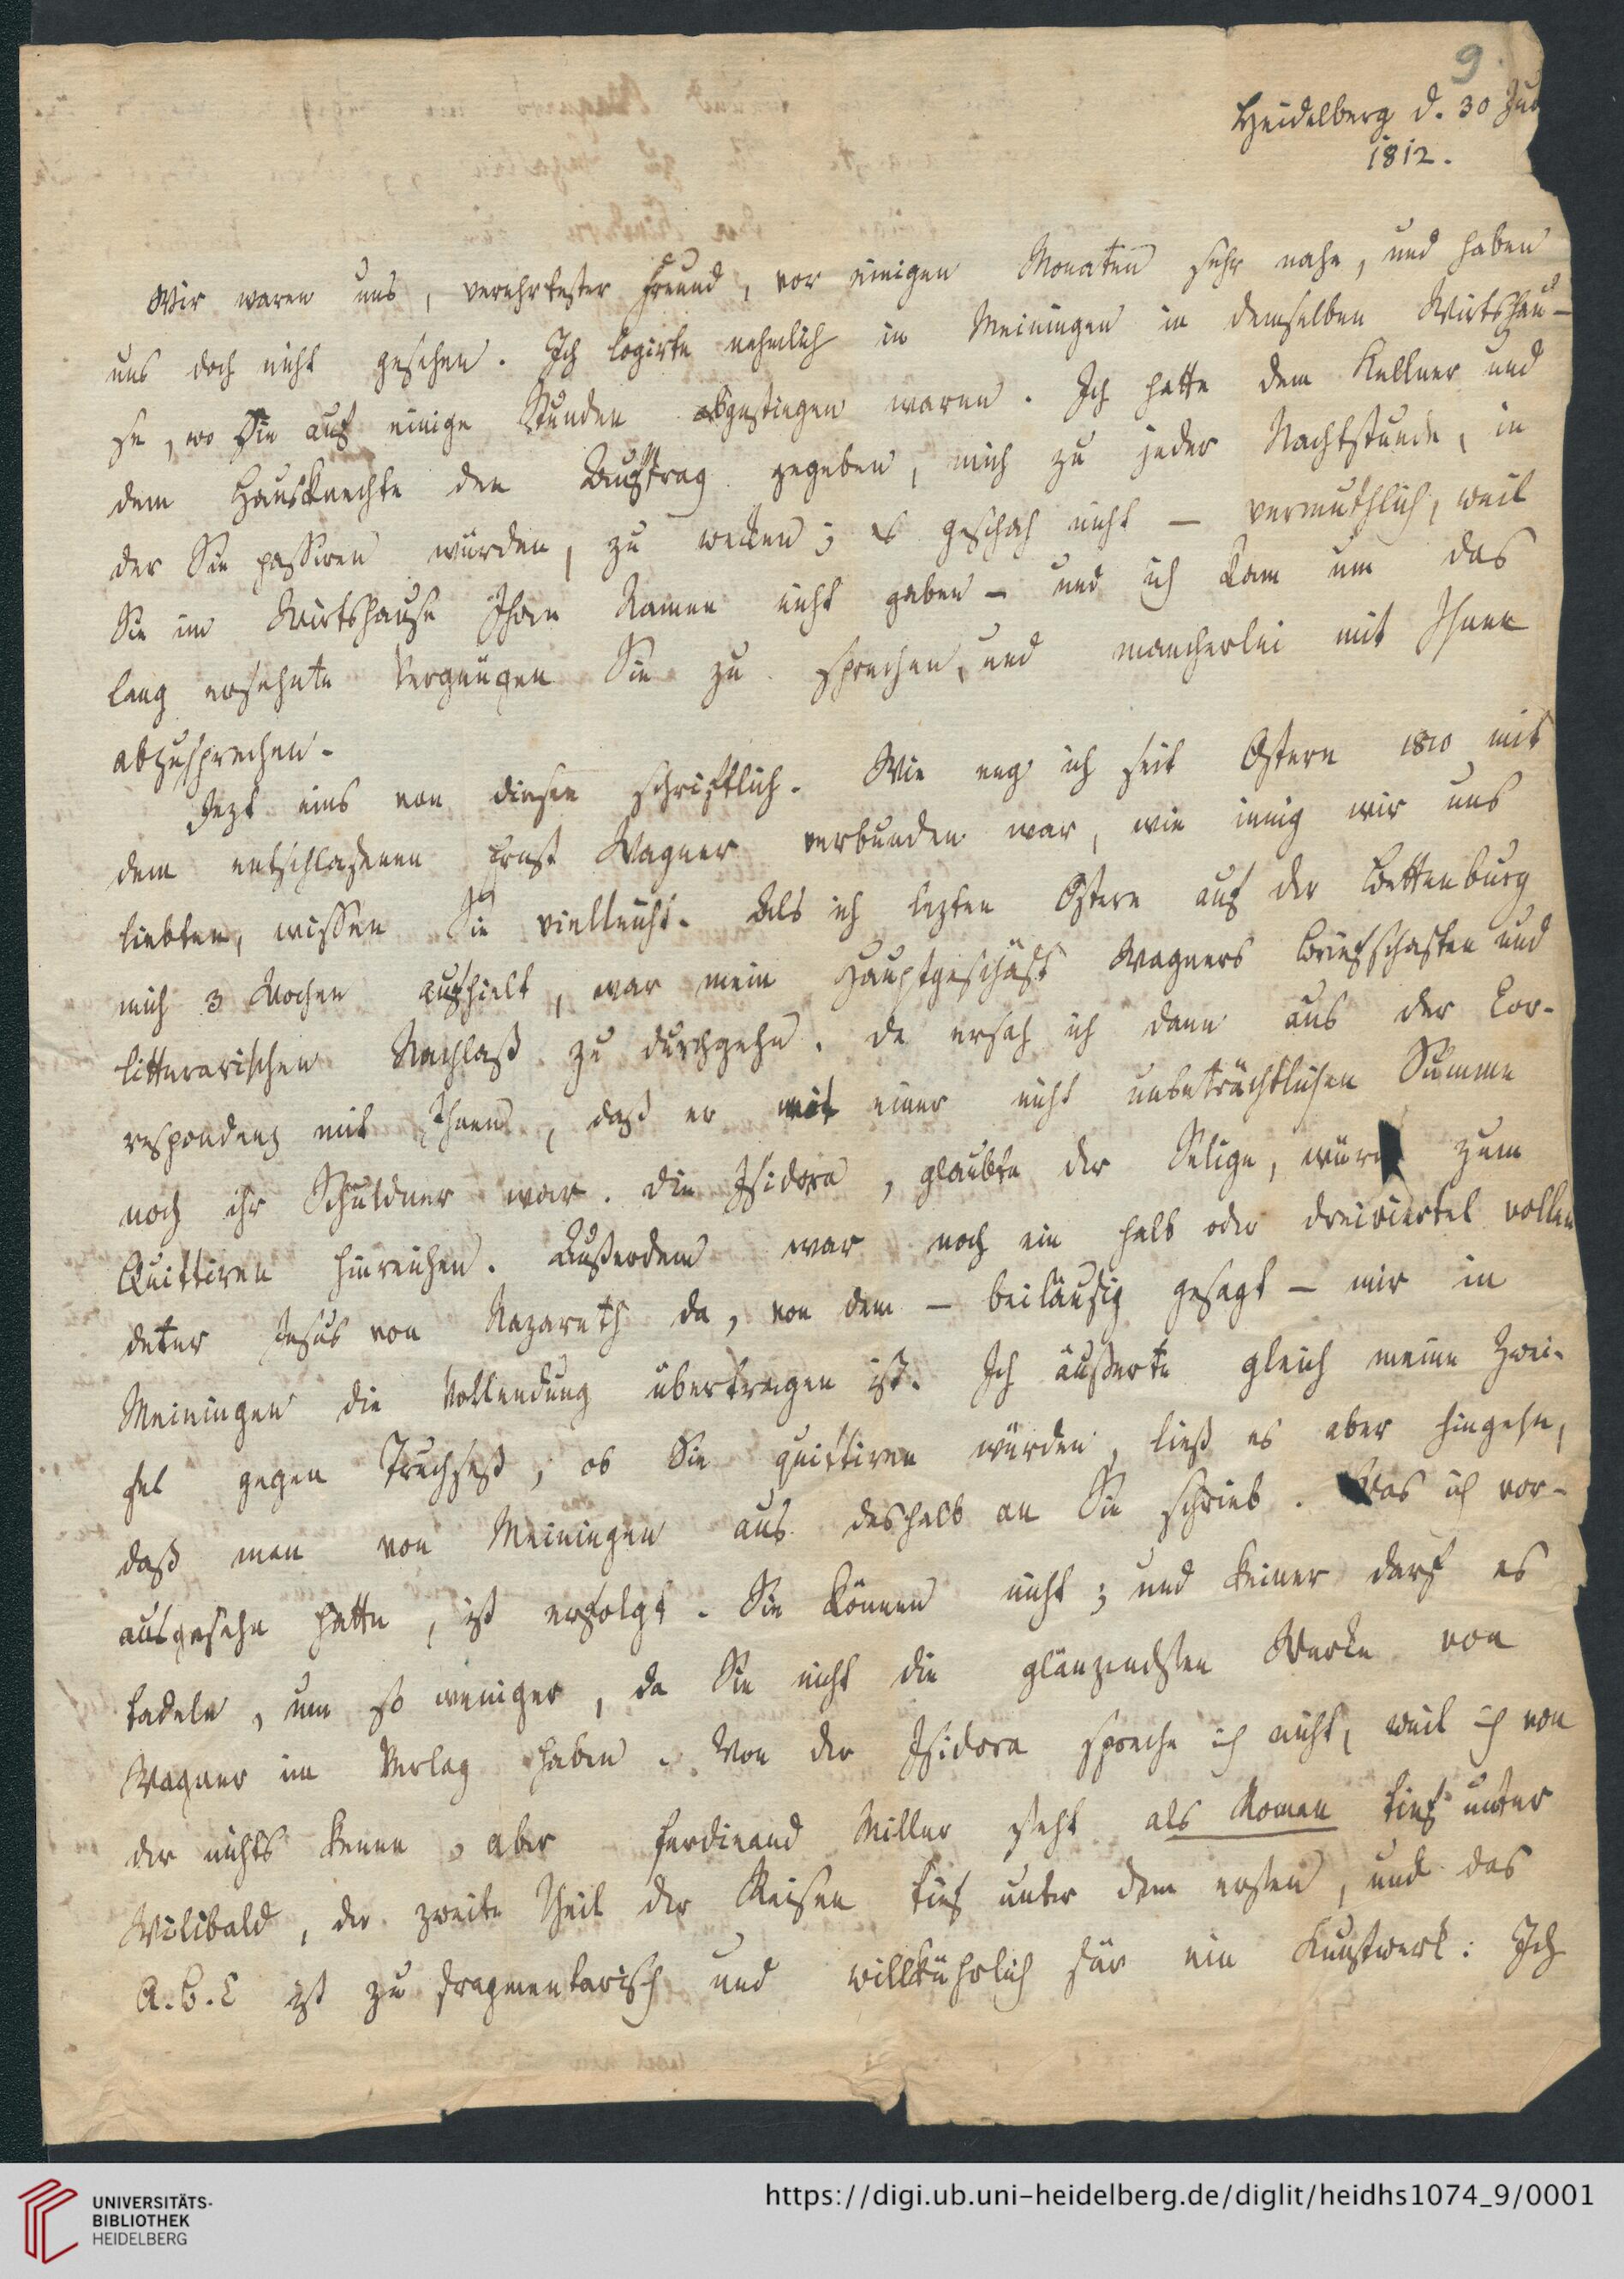 9.
Heidelberg d. 30 Jun
1812.
Wir waren uns, verehrtester Freund, vor einigen Monaten sehr nahe, und haben
uns doch nicht gesehen. Ich logirte nehmlich in Meiningen in demselben Wirtshau-
se, wo Sie auf einige Stunden abgestiegen waren. Ich hatte dem Kellner und
dem Hausknechte den Auftrag gegeben, mich zu jeder Nachtstunde, in
der Sie passiren würden, zu wecken; es geschah nicht – vermuthlich, weil
Sie im Wirtshause Ihren Namen nicht gaben – und ich kam um das
lang ersehnte Vergnügen Sie zu sprechen, und mancherlei mit Ihnen
abzusprechen.
Jezt eins von diesen schriftlich. Wie eng ich seit Ostern 1810 mit
dem entschlafenen Ernst Wagner verbunden war, wie innig wir uns
liebten, wissen Sie vielleicht. Als ich lezten Ostern auf der Bettenburg
mich 3 Wochen aufhielt, war mein Hauptgeschäft Wagners Briefschaften und
litterarischen Nachlaß zu durchgehn. da ersah ich denn aus der Cor-
respondenz mit Ihnen, daß er mit einer nicht unbeträchtlichen Summe
noch ihr Schuldner war. die Isidora, glaubte der Selige, würde zum
Quittiren hinreichen. Außerdem war noch ein halb oder dreiviertel vollen
deter Jesus von Nazareth da, von dem – beiläufig gesagt – mir in
Meiningen die Vollendung übertragen ist. Ich äußerte gleich meine Zwei-
fel gegen Truchseß, ob Sie quittiren würden, ließ es aber hingehn,
daß man von Meiningen aus deshalb an Sie schrieb. Was ich vor-
ausgesehn hatte, ist erfolgt. Sie können nicht; und keiner darf es
tadeln, um so weniger, da Sie nicht die glänzendsten Werke von
Wagner im Verlag haben. Von der Isidora spreche ich nicht, weil ich von
der nichts kenne, aber Ferdinand Miller steht als Roman tief unter
Wilibald, der zweite Theil der Reisen tief unter dem ersten, und das
A.B.C ist zu fragmentarisch und willkührlich für ein Kunstwerk: Ich
UNIVERSITÄTS-
BIBLIOTHEK
HEIDELBERG
https://digi.ub.uni-heidelberg.de/diglit/heidhs1074_9/0001